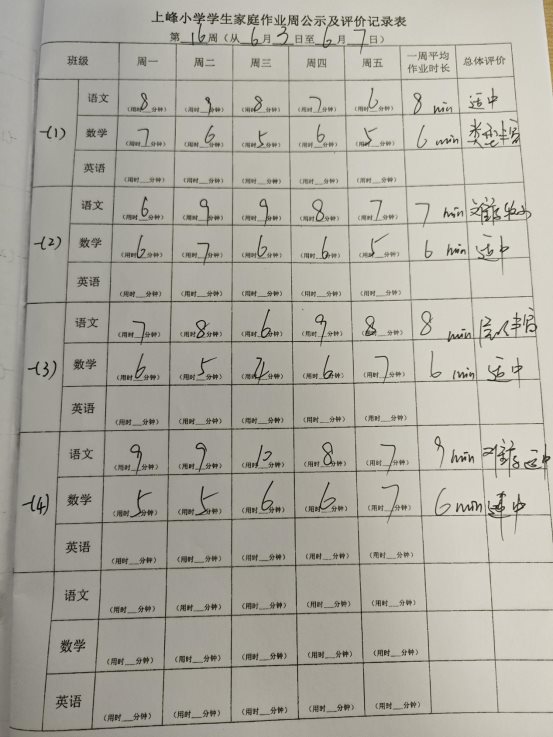 上峰小学学生家庭作业周公示及评价记录表
第 16 周（从 6 月 3 日至 6 月 7 日）
班级 周一 周二 周三 周四 周五 一周平均作业时长 总体评价
一(1) 语文 8（用时__分钟） 8（用时__分钟） 8（用时__分钟） 7（用时__分钟） 6（用时__分钟） 8 min 适中
数学 7（用时__分钟） 6（用时__分钟） 5（用时__分钟） 6（用时__分钟） 5（用时__分钟） 6 min 类型丰富
英语 （用时__分钟） （用时__分钟） （用时__分钟） （用时__分钟） （用时__分钟）
一(2) 语文 6（用时__分钟） 9（用时__分钟） 9（用时__分钟） 8（用时__分钟） 7（用时__分钟） 7 min
数学 6（用时__分钟） 7（用时__分钟） 6（用时__分钟） 6（用时__分钟） 5（用时__分钟） 6 min 适中
英语 （用时__分钟） （用时__分钟） （用时__分钟） （用时__分钟） （用时__分钟）
一(3) 语文 7（用时__分钟） 8（用时__分钟） 6（用时__分钟） 9（用时__分钟） 8（用时__分钟） 8 min
数学 6（用时__分钟） 5（用时__分钟） （用时__分钟） 6（用时__分钟） 7（用时__分钟） 6 min 适中
英语 （用时__分钟） （用时__分钟） （用时__分钟） （用时__分钟） （用时__分钟）
一(4) 语文 9（用时__分钟） 9（用时__分钟） 12（用时__分钟） 8（用时__分钟） 7（用时__分钟） 9 min 难度适中
数学 5（用时__分钟） 5（用时__分钟） 6（用时__分钟） 6（用时__分钟） 7（用时__分钟） 6 min 适中
英语 （用时__分钟） （用时__分钟） （用时__分钟） （用时__分钟） （用时__分钟）
语文 （用时__分钟） （用时__分钟） （用时__分钟） （用时__分钟） （用时__分钟）
数学 （用时__分钟） （用时__分钟） （用时__分钟） （用时__分钟） （用时__分钟）
英语 （用时__分钟） （用时__分钟） （用时__分钟） （用时__分钟） （用时__分钟）